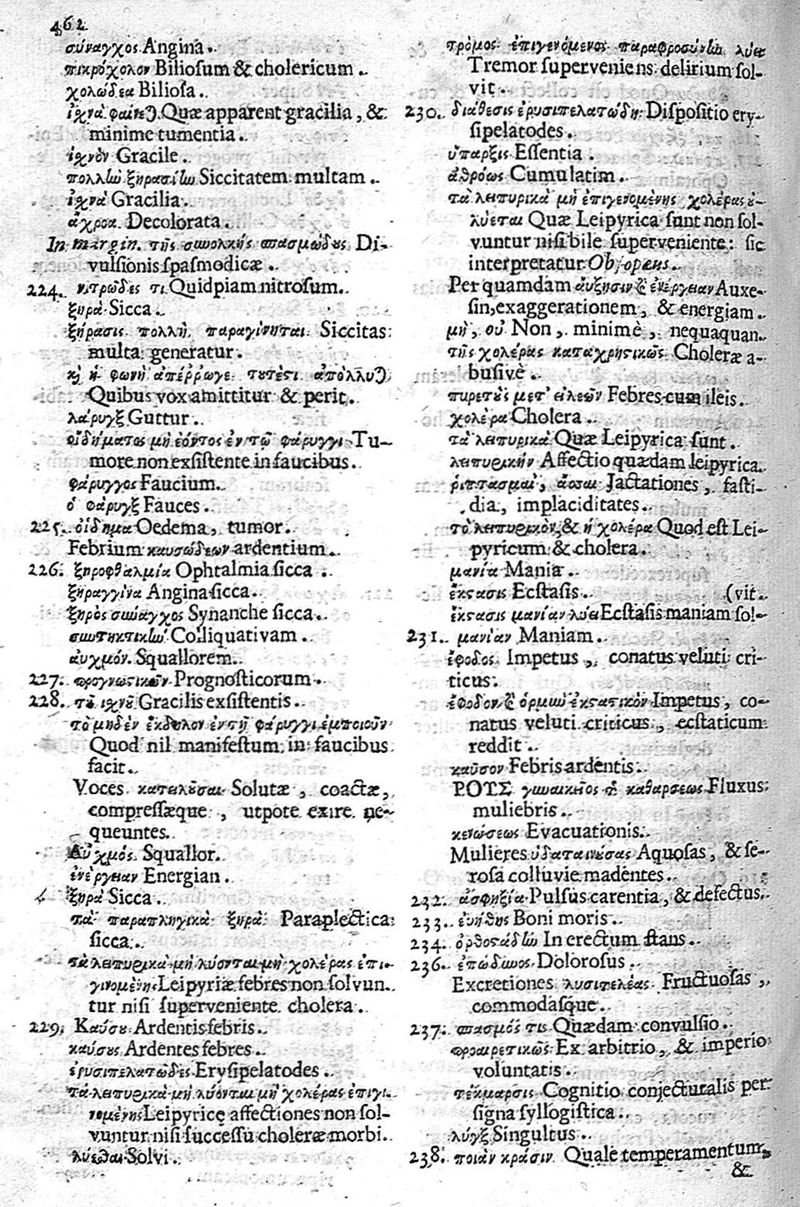 462
σύναγχος Angina.
πικρόχολον Biliosum & cholericum.
χολώδεα Biliosa.
ἰχνὰ φαίνε). Quæ apparent gracilia, &
minime tumentia.
ἰχνὸν Gracile.
πολλὼ ξηρασίω Siccitatem multam.
ἰχνὰ Gracilia.
ἄχροα Decolorata.
In margin. τῆς σωολκῆς σπασμώδους Di-
vulsionis spasmodicæ.
224. νιτρῶδες τι Quidpiam nitrosum.
ξηρὰ Sicca.
ξήρασις πολλὴ παραγίνηται Siccitas
multa generatur.
κ̀ ἡ φωνὴ ἀπέρρωγε τουτέστι ἀπόλλυ)
Quibus vox amittitur & perit.
λάρυγξ Guttur.
οἰδήματος μὴ ἐόντος ἐν τῷ φάρυγγι Tu-
more non exsistente in faucibus.
φάρυγγος Faucium.
ὁ φάρυγξ Fauces.
225. οἴδημα Oedema, tumor.
Febrium καυσώδεων ardentium.
226. ξηροφθαλμία Ophtalmia sicca.
ξηραγγίνα Angina sicca.
ξηρὸς σωάγχος Synanche sicca.
σωτηκτικὼ Colliquativam.
αὐχμόν. Squallorem.
227. προγνωστικῶν Prognosticorum.
228. τοῦ ἰχνοῦ Gracilis exsistentis.
τὸ μηδὲν ἔκδηλον ἐν τῇ φάρυγγι ἐμποιοῦν
Quod nil manifestum in faucibus
facit.
Voces κατειλοῦσαι Solutæ, coactæ,
compressæque, utpote exire ne-
queuntes.
Αὐχμός Squallor.
ἐνέργειαν Energian.
ξηρὰ Sicca.
τὰ παραπληγικὰ ξηρὰ Paraplectica
sicca.
τὰ λειπυρικὰ μὴ λύονται μὴ χολέρας ἐπι-
γινομένης Leipyriæ febres non solvun-
tur nisi superveniente cholera.
229. Καύσου Ardentis febris.
καύσους Ardentes febres.
ἐρυσιπελατώδες Erysipelatodes.
τὰ λειπυρικὰ μὴ λύονται μὴ χολέρας ἐπιγι-
νομένης Leipyricę affectiones non sol-
vuntur nisi successu choleræ morbi.
λύεσθαι Solvi.
τρόμος ἐπιγενόμενος παραφροσύνω λύει
Tremor superveniens delirium sol-
vit.
230. διάθεσις ἐρυσιπελατώδη: Dispositio ery-
sipelatodes.
ὕπαρξις Essentia.
ἀθρόως Cumulatim.
τὰ λειπυρικὰ μὴ ἐπιγενομένης χολέρας ὐ-
λύεται Quæ Leipyrica sunt non sol-
vuntur nisi bile superveniente: sic
interpretatur Obsopæus.
Per quamdam αὔξησιν & ἐνέργειαν Auxe-
sin, exaggerationem, & energiam.
μὴ, οὐ Non, minimè, nequaquam.
τῆς χολέρας καταχρητικῶς Choleræ a-
busivè.
πυρετοὺς μετ' εἰλεῶν Febres cum ileis.
χολέρα Cholera.
τὰ λειπυρικὰ Quæ Leipyrica sunt.
λειπυρικὴν Affectio quædam leipyrica.
ῥιπτασμοὶ, ἄσαι Jactationes, fasti-
dia, implaciditates.
τὸ λειπυρικὸν, & ἡ χολέρα Quod est Lei-
pyricum & cholera.
μανία Mania.
ἔκστασις Ecstasis. (vit.
ἔκστασις μανίαν λύει Ecstasis maniam sol-
231. μανίαν Maniam.
ἔφοδος Impetus, conatus veluti cri-
ticus.
ἔφοδον & ὁρμὼ ἐκστατικὸν Impetus, co-
natus veluti criticus, ecstaticum
reddit.
καῦσον Febris ardentis.
ΡΟΥΣ γυναικεῖος ἢ καθάρσεως Fluxus
muliebris.
κενώσεως Evacuationis.
Mulieres ὑδαταινούσας Aquosas, & se-
rosa colluvie madentes.
232. ἀσφηξία Pulsus carentia, & defectus.
233. εὐήθης Boni moris.
234. ὀρθοστάδω In erectum stans.
236. ἐπώδυνος Dolorosus.
Excretiones λυσιτελέας Fructuosas,
commodasque.
237. σπασμός τις Quædam convulsio.
προαιρετικῶς Ex arbitrio, & imperio
voluntatis.
τέκμαρσις Cognitio conjecturalis per
signa syllogistica.
λύγξ Singultus.
238. ποίαν κρᾶσιν Quale temperamentum,
&